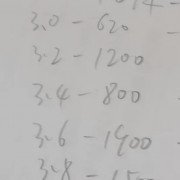 3.0 - 620
3.2 - 1200
3.4 - 800
3.6 - 1900
3.8 -